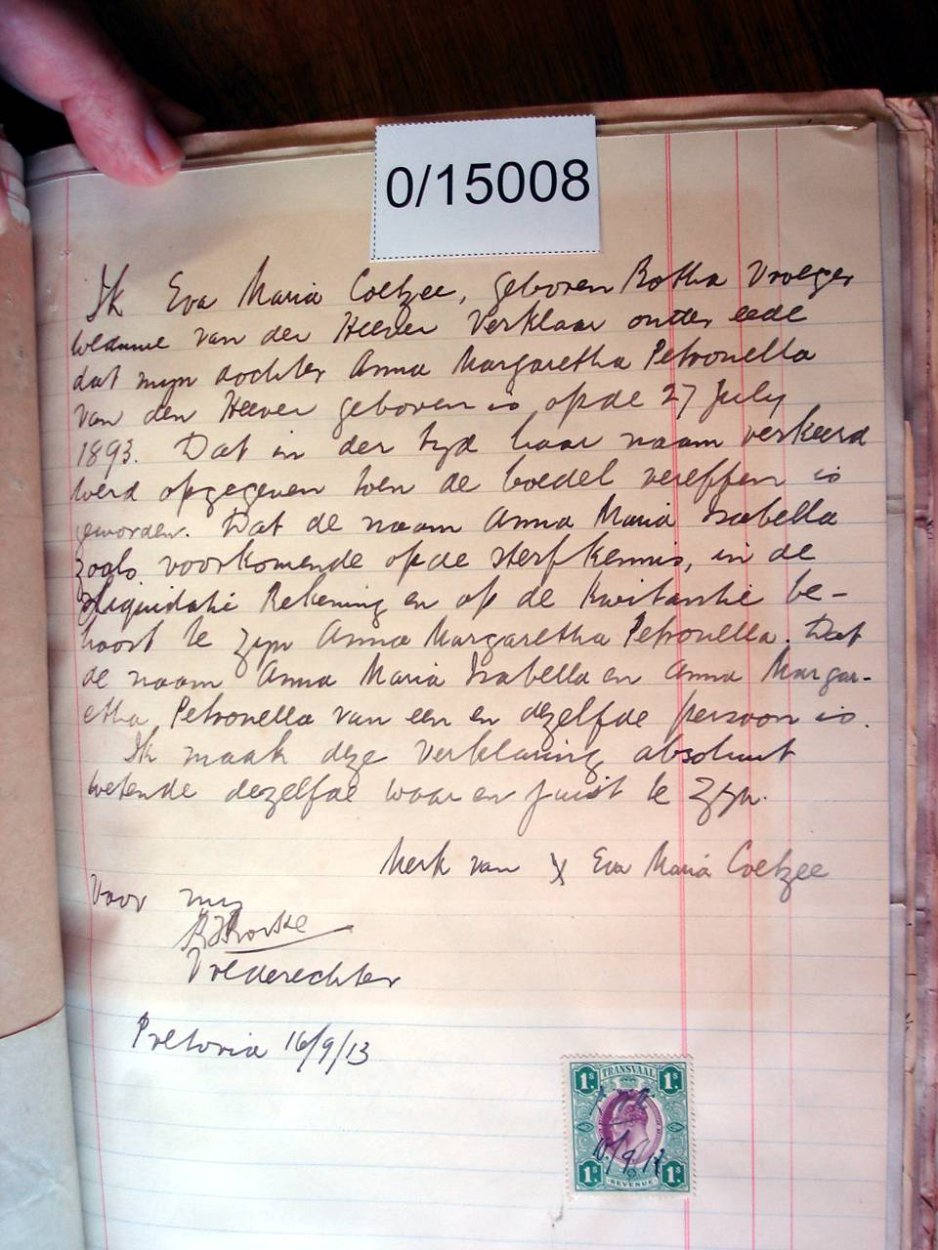 0/15008
Ik Eva Maria Coetzee, geboren Botha Vroeger
weduwe van der Heever Verklaar onder eede
dat mijn dochter Anna Margaretha Petronella
van den Heever geboren is op de 27 July
1893. Dat in der tyd haar naam verkeerd
werd opgegeven toen de boedel vereffen is
geworden. Dat de naam Anna Maria Isabella
zoals voorkomende op de sterfkennis, in de
liquidatie Rekening en op de Kwitantie be-
hoort te zijn Anna Margaretha Petronella. Dat
de naam Anna Maria Isabella en Anna Margar-
etha Petronella van een en dezelfde persoon is.
Ik maak deze verklaring absoluut
wetende dezelfde waar en juist te zijn.
Merk van X Eva Maria Coetzee
Voor my
Vrederechter
Pretoria 16/9/13
TRANSVAAL
1S 1S
16/9/13
1S 1S
REVENUE